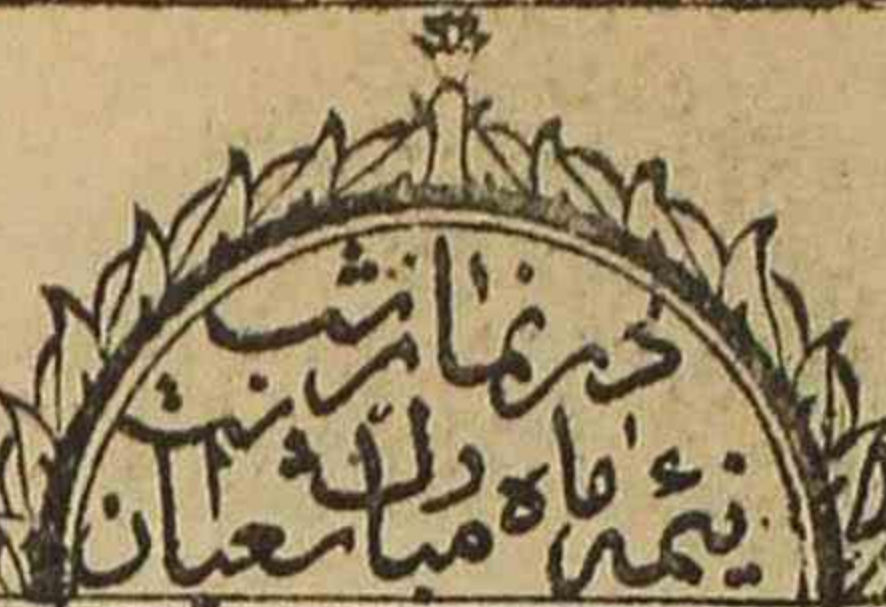 در نماز شب
نیمهٔ ماه مبارک شعبان است